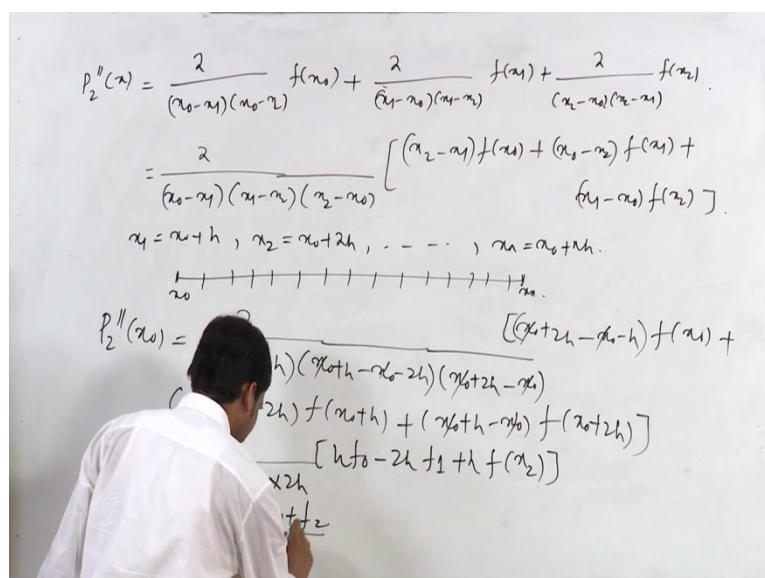 P₂''(x) = 2/((x₀-x₁)(x₀-x₂)) f(x₀) + 2/((x₁-x₀)(x₁-x₂)) f(x₁) + 2/((x₂-x₀)(x₂-x₁)) f(x₂).
= 2/((x₀-x₁)(x₁-x₂)(x₂-x₀)) [(x₂-x₁)f(x₀) + (x₀-x₂)f(x₁) +
(x₁-x₀)f(x₂)].
x₁ = x₀+h, x₂ = x₀+2h, - - - ·, xn = x₀+nh.
x₀ xn.
P₂''(x₀) = [(x₀+2h-x₀-h)f(x₁) +
h)(x₀+h-x₀-2h)(x₀+2h-x₀)
2h)f(x₀+h) + (x₀+h-x₀)f(x₀+2h)]
[hf₀-2hf₁+hf(x₂)]
x2h
+f₂